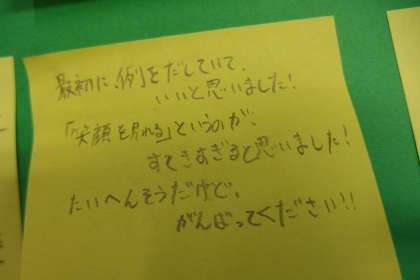 最初に、例をだしていて、
いいと思いました!
「笑顔を見れる」というのが、
すてきすぎると思いました!
たいへんそうだけど、
がんばってください!!